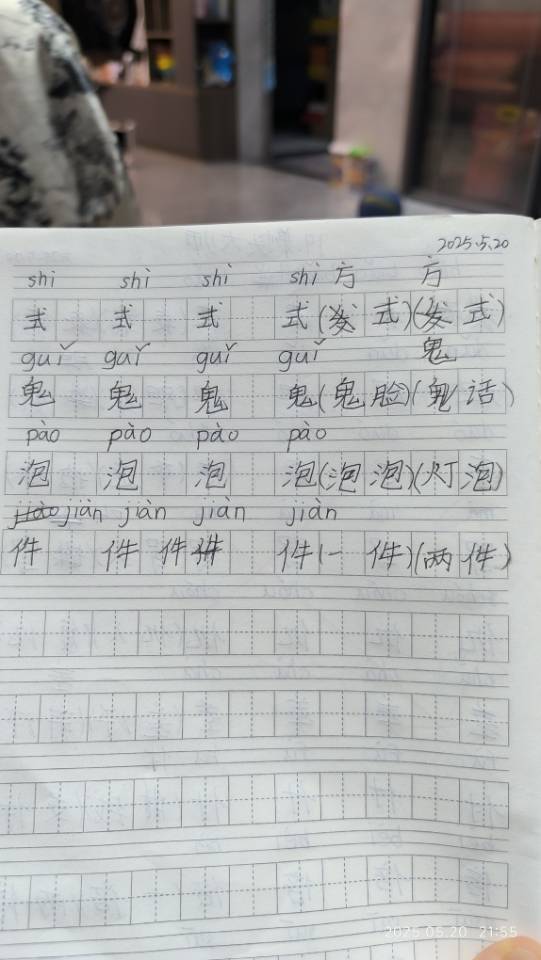 2025.5.20
shì shì shì shì 方 方
式 式 式 式(发 式)(发 式)
guǐ guǐ guǐ guǐ 鬼
鬼 鬼 鬼 鬼(鬼 脸)(鬼 话)
pào pào pào pào
泡 泡 泡 泡(泡 泡)(灯 泡)
jiào jiàn jiàn jiàn jiàn
件 件 件 件 件(一 件)(两 件)
2025.05.20 21:55